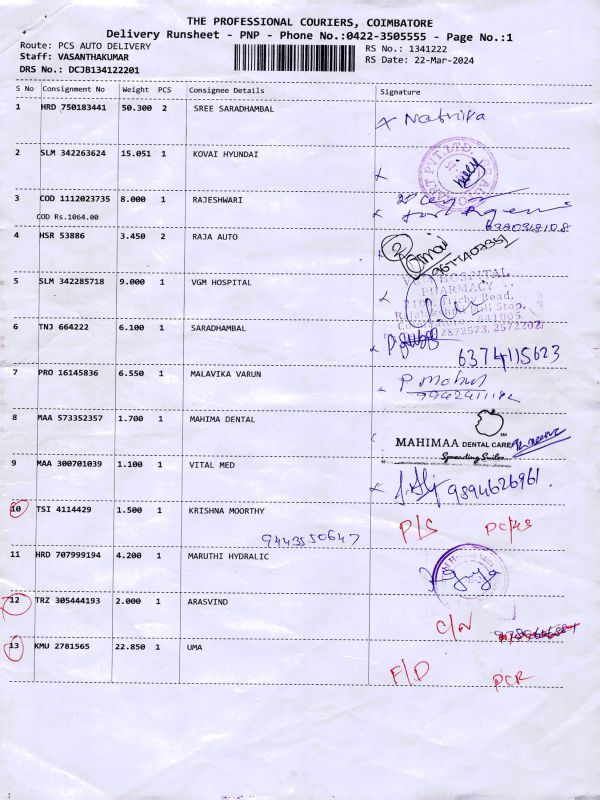 THE PROFESSIONAL COURIERS, COIMBATORE
Delivery Runsheet - PNP - Phone No.:0422-3505555 - Page No.:1
Route: PCS AUTO DELIVERY RS No.: 1341222
Staff: VASANTHAKUMAR RS Date: 22-Mar-2024
DRS No.: DCJB134122201
S No Consignment No Weight PCS Consignee Details Signature
1 HRD 750183441 50.300 2 SREE SARADHAMBAL
2 SLM 342263624 15.051 1 KOVAI HYUNDAI
3 COD 1112023735 8.000 1 RAJESHWARI
COD Rs.1064.00
4 HSR 53886 3.450 2 RAJA AUTO
5 SLM 342285718 9.000 1 VGM HOSPITAL
VGM HOSPITAL
PHARMACY
6 TNJ 664222 6.100 1 SARADHAMBAL
6374115623
7 PRO 16145836 6.550 1 MALAVIKA VARUN
P mohan
8 MAA 573352357 1.700 1 MAHIMA DENTAL
MAHIMAA DENTAL CARE
Spreading Smiles...
9 MAA 300701039 1.100 1 VITAL MED
9894626961
10 TSI 4114429 1.500 1 KRISHNA MOORTHY
9443550647
P/S
11 HRD 707999194 4.200 1 MARUTHI HYDRALIC
12 TRZ 305444193 2.000 1 ARASVIND
C/N
13 KMU 2781565 22.850 1 UMA
F/D PCR